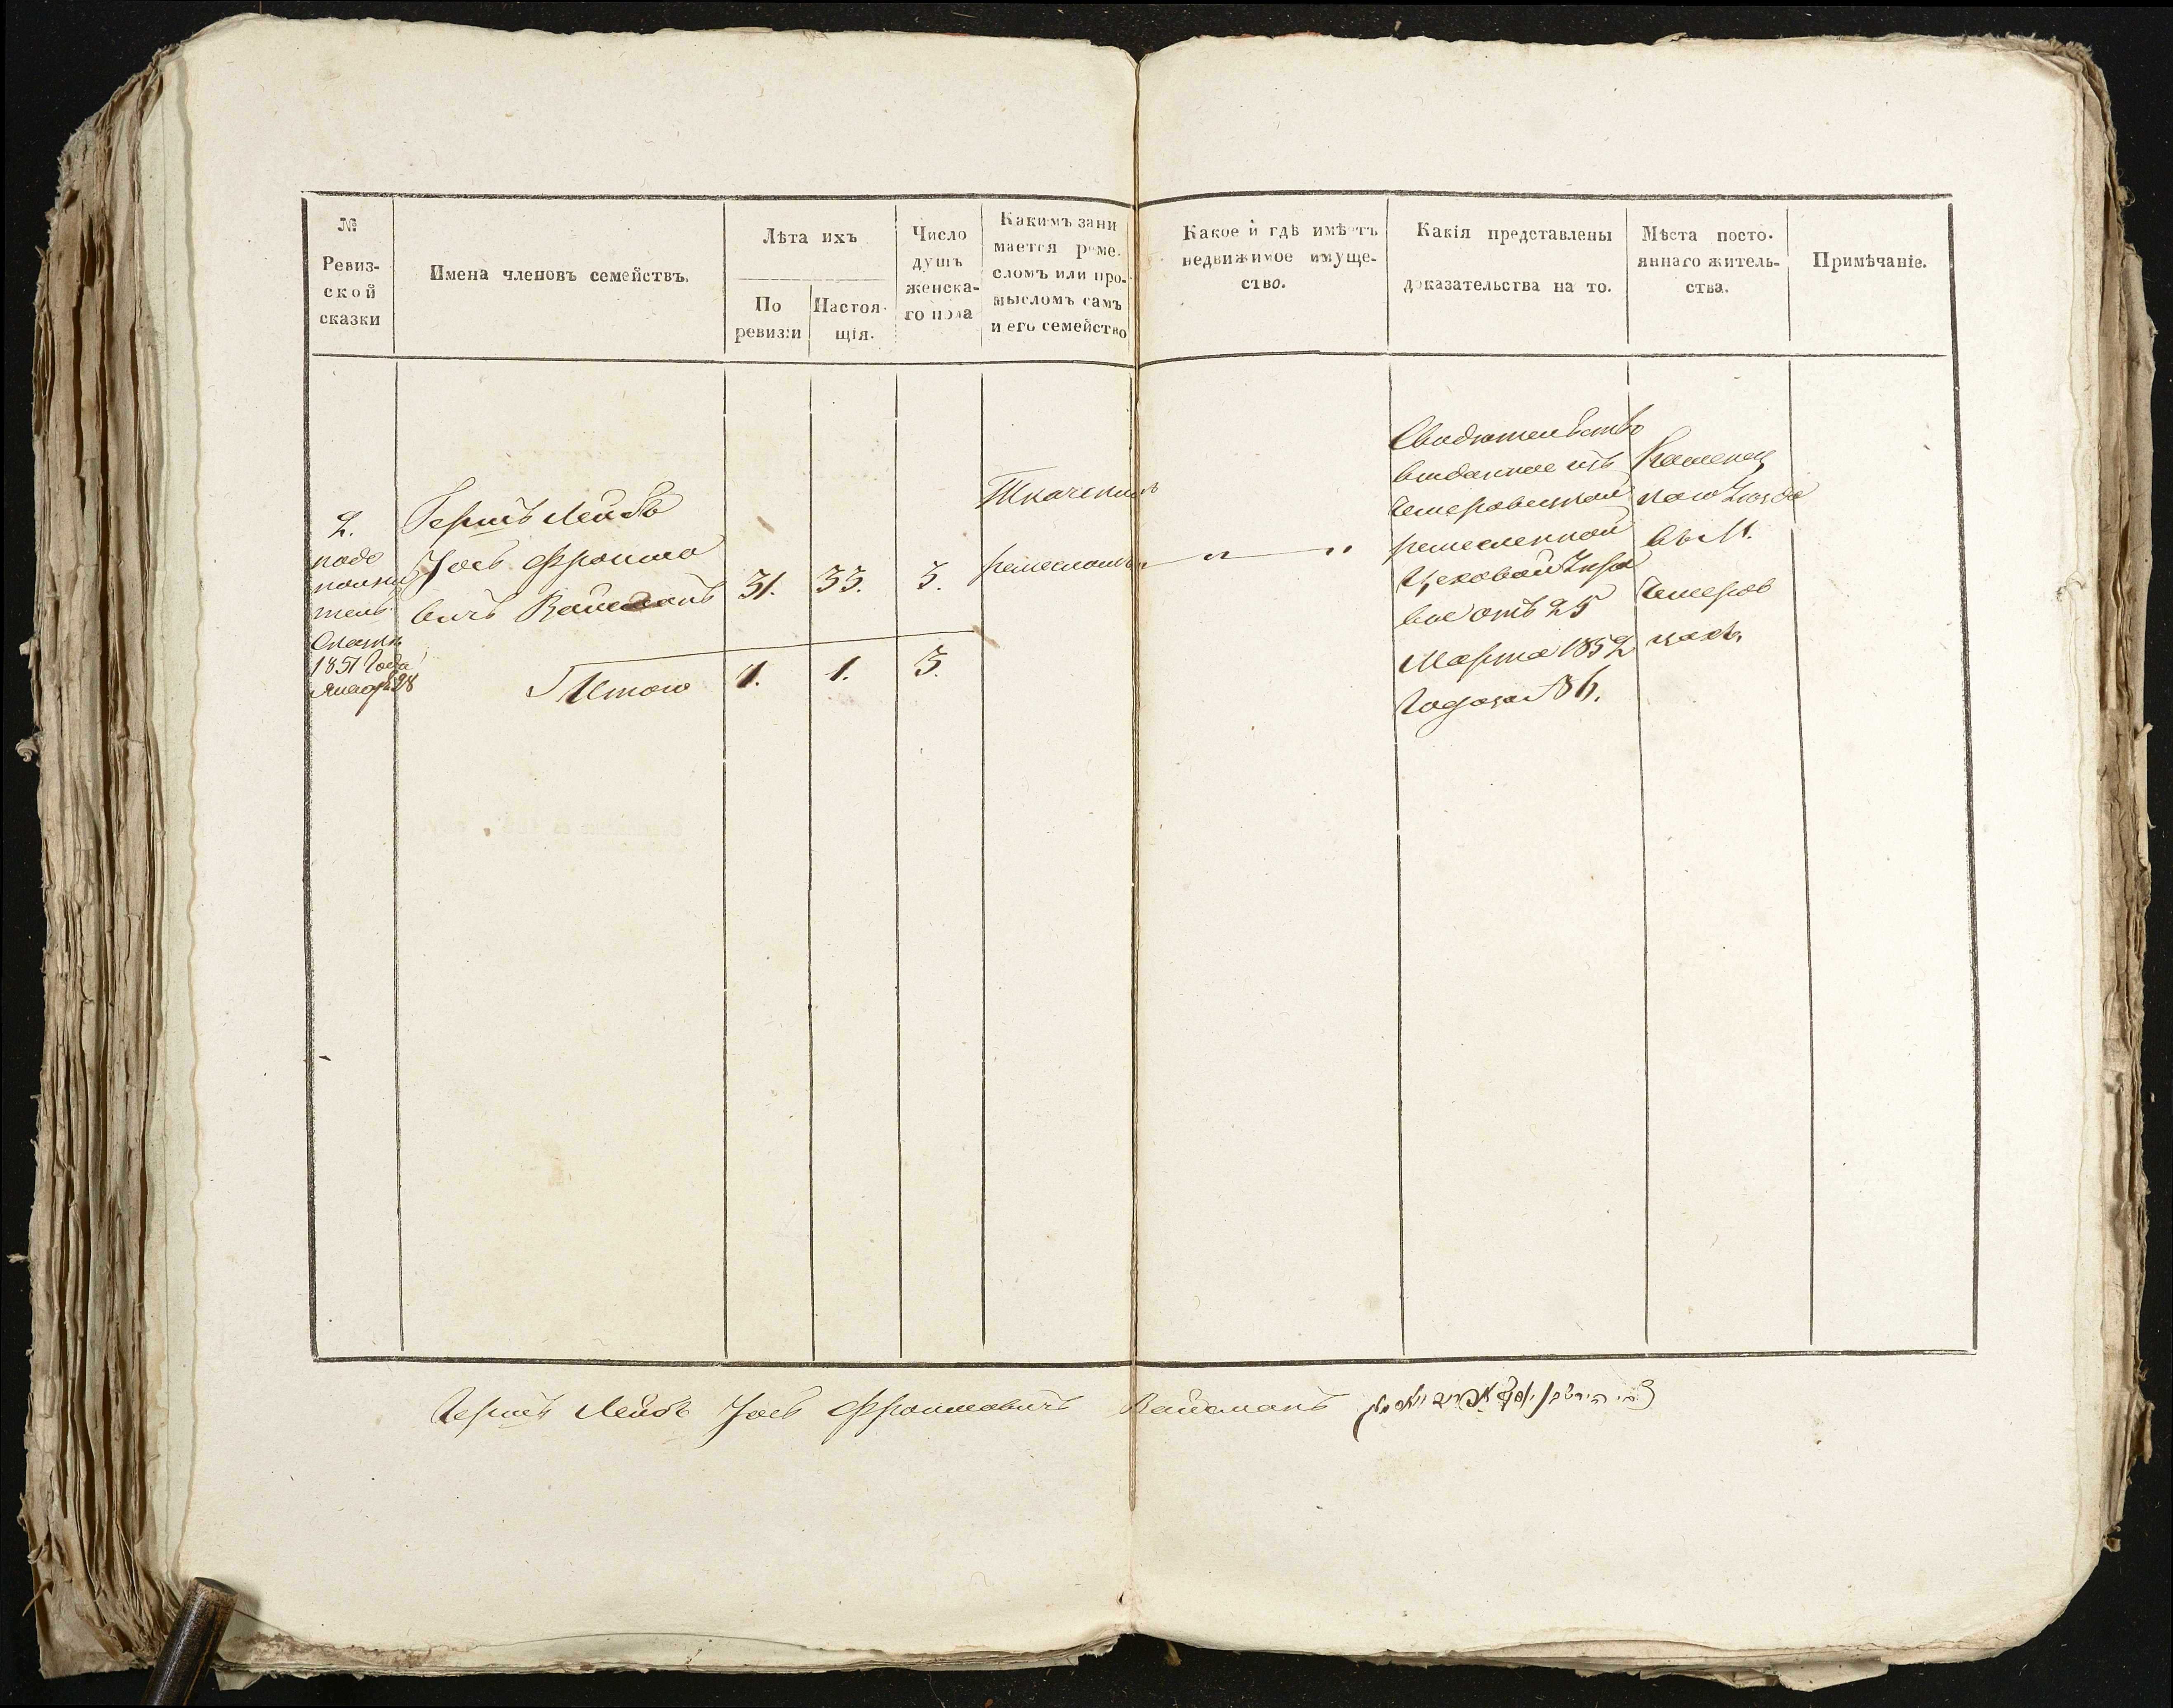 №
Ревиз-
ской
сказки
Имена членовъ семействъ.
Лѣта ихъ
По
ревизіи
Настоя-
щія.
Число
душъ
женска-
го пола
Какимъ зани
мается реме-
сломъ или про-
мысломъ самъ
и его семейство
Какое и гдѣ имѣетъ
недвижимое имуще-
ство.
Какія представлены
доказательства на то.
Мѣста посто-
яннаго житель-
ства.
Примѣчаніе.
2.
по до
полни
тель.
Сказкѣ
1851 Года
Января 28
Гершъ Лейбъ
Іось Фроимо
вичъ Вайсманъ
31.
33.
3.
Ткацкимъ
ремесломъ
Свидѣтельство
выданное изъ
Чемеровецкой
ремесленной
Цеховой Упра
вы отъ 25
Марта 1852
Года за № 6.
Каменец
каго Уѣзда
въ М.
Чемеров
цахъ
Итого
1.
1.
3.
Гершъ Лейбъ Іось Фроимовичъ Вайсманъ